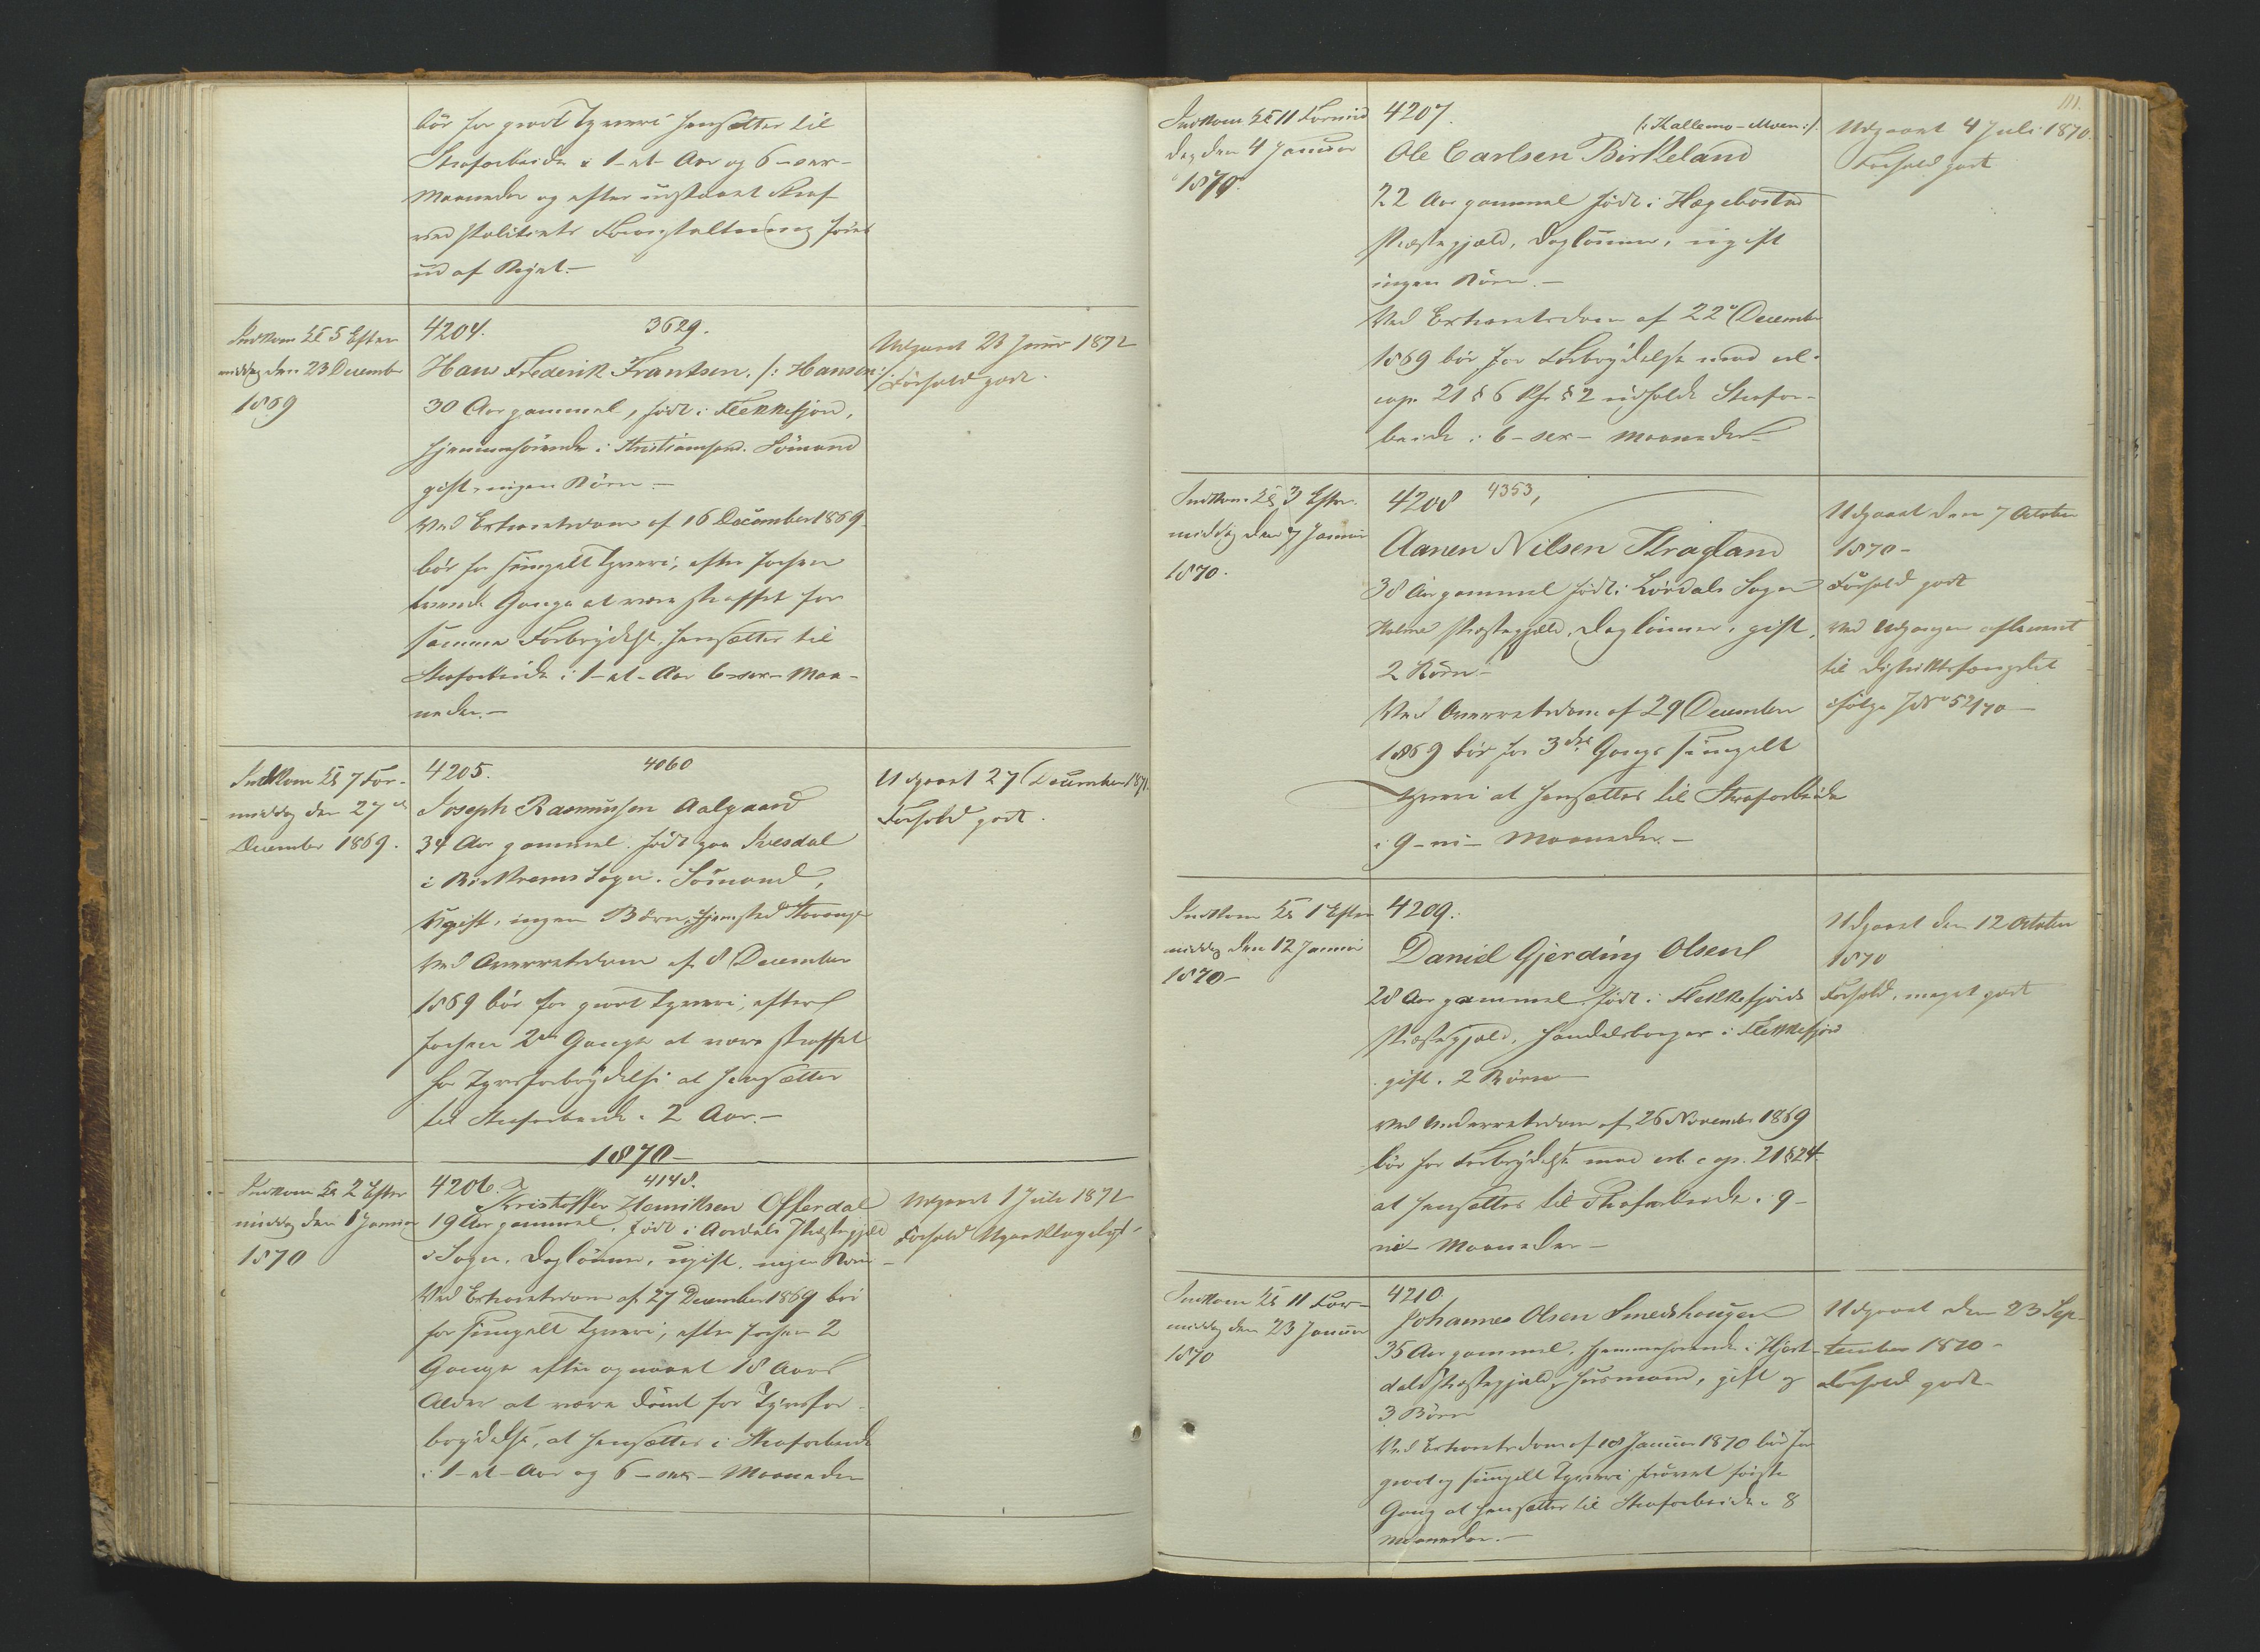 bör for grovt Tyveri hensættes til
Strafarbeide i 1-et- Aar og 6-sex-
Maaneder og efter udstaaet Straf
ved Politiets Foranstaltning føres
ud af Riget.-
Indkom Kl 5 Efter
middag den 23 December
1869
4204. 3629.
Hans Frederik Frantsen. /: Hansen :/
30 Aar gammel, født i Flekkefjord,
hjemmehørende i Kristiansand. Sömand
gift, ingen Börn -
Ved Extraretsdom af 16 December 1869
bör for simpelt Tyveri, efter forhen
tvende Gange at være straffet for
samme Forbrydelse, hensættes til
Strafarbeide i 1-et-Aar 6-sex- Maa-
neder.-
Udgaaet 23 Juni 1871
Forhold godt.
Indkom Kl 7 For-
middag den 27de
December 1869.
4205. 4060
Joseph Rasmussen Aalgaard
34 Aar gammel. født paa
i Birkrems Sogn. Sömand,
Ugift, ingen Börn, Hjemsted Stavanger
Ved Overretsdom af 8 December
1869 bör for grovt Tyveri, efter
forhen 2de Gange at være straffet
for Tyvsforbrydelse at hensættes
til Strafarbeide i 2 Aar.-
Udgaaet 27 December 1871.
Forhold godt.
1870-
Indkom Kl 2 Efter
middag den 1 Januar
1870
4206. 4148.
Kristoffer Henriksen Offerdal
19 Aar gammel, født i Aardals Præstegjæld
i Sogn, Daglönner, ugift, ingen Börn -
Ved Extraretsdom af 27 December 1869 bör
for simpelt Tyveri, efter forhen 2
Gange efter opnaaet 18 Aars
Alder at være dömt for Tyvsfor-
brydelse, at hensættes i Strafarbeide
i 1-et-Aar og 6-sex-Maaneder
Udgaaet 1 Juli 1871
Forhold Upaaklageligt-
111.
Indkom Kl 11 Formid
dag den 4 Januar
1870.
4207.
/: Kallemo-Moen :/
Ole Carlsen Birkeland
22 Aar gammel født i Hægebostad
Præstegjæld, Daglönner, ugift
ingen Börn.-
Ved Extraretsdom af 22de December
1869 bör for Forbrydelse mod crl.
cap. 21 § 6 Kfr § 2 udholde Strafar-
beide i 6-sex- Maaneder-
Udgaaet 4 Juli 1870.
Forhold godt
Indkom Kl 3 Efter
middag den 7 Januar
1870.
4208 4353,
Aanen Nilsen Skragland
38 Aar gammel født i Sogn
Holme Præstegjæld, Daglönner, gift,
2 Börn.-
Ved Overretsdom af 29 December
1869 bör for 3die Gangs simpelt
Tyveri at hensættes til Strafarbeide
i 9-ni- Maaneder.-
Udgaaet den 7 October
1870-
Forhold godt
Ved Udgangen afleveret
til Distriktsfængslet
ifølge JNo 52/70
Indkom Kl 1 Efter
middag den 12 Januar
1870-
4209.
Daniel Gjerding Olsen
28 Aar gammel født i Flekkefjords
Præstegjæld, Handelsborger i Flekkefjord
gift. 2 Börn
Ved Underretsdom af 26 November 1869
bör for Forbrydelse mod crl. cap. 21 § 24
at hensættes til Strafarbeide i 9-
ni- Maaneder-
Udgaaet den 12 October
1870
Forhold, meget godt
Indkom Kl 11 For-
middag den 23 Januar
1870
4210.
Johannes Olsen Smedshaugen
35 Aar gammel, hjemmehørende i Hjart-
dals Præstegjæld, Husmand, gift og
3 Börn
Ved Extraretsdom af 18 Januar 1870 bör for
grovt og simpelt Tyveri første
Gang at hensættes til Strafarbeide i 8
Maaneder.-
Udgaaet den 23 Sep-
tember 1870-
Forhold godt-